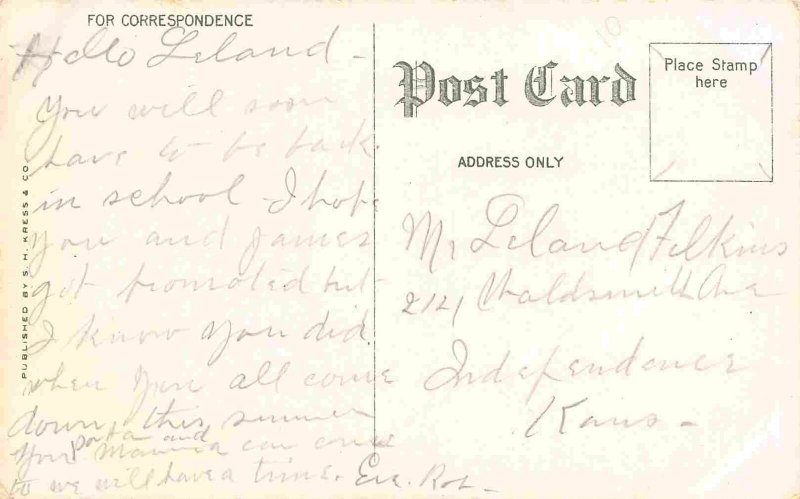 FOR CORRESPONDENCE
Hello Leland -
You will soon
have to be back
in school - I hope
you and James
got promoted but
I know you did.
when you all come
down, this summer
your papa and
Mamma can come
to we will have a time.
PUBLISHED BY S. H. KRESS & CO.
Post Card
Place Stamp
here
ADDRESS ONLY
Mr Leland Filkins
212, Ave
Independence
Kans -